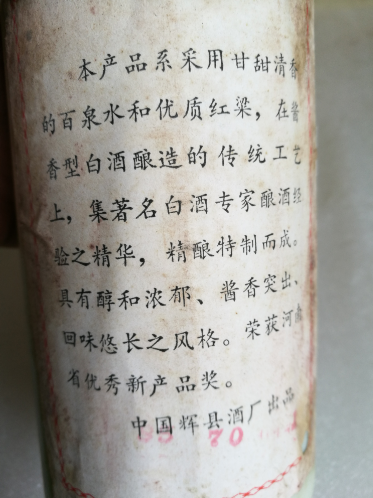 本产品系采用甘甜清香
的百泉水和优质红梁，在酱
香型白酒酿造的传统工艺
上，集著名白酒专家酿酒经
验之精华，精酿特制而成。
具有醇和浓郁、酱香突出、
回味悠长之风格。荣获河南
省优秀新产品奖。
中国辉县酒厂出品
70